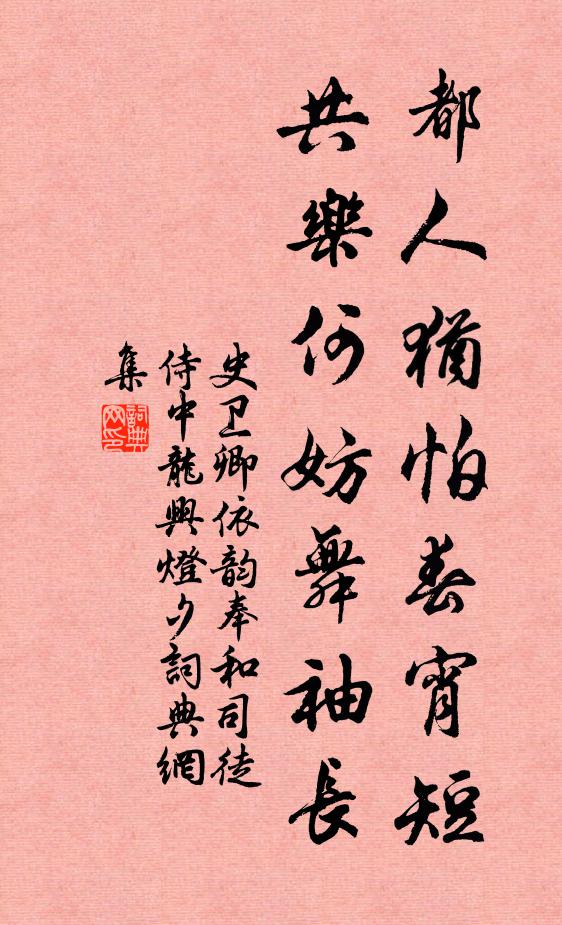 都人猶怕春宵短
共樂何妨舞袖長
史卫卿依韵奉和司徒
侍中龍興燈夕詞典網
集
詞典
网印